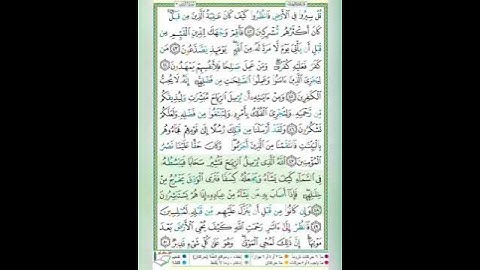 قُلْ سِيرُوا۟ فِى ٱلْأَرْضِ فَٱنظُرُوا۟ كَيْفَ كَانَ عَـٰقِبَةُ ٱلَّذِينَ مِن قَبْلُ ۚ
كَانَ أَكْثَرُهُم مُّشْرِكِينَ ﴿٤٢﴾ فَأَقِمْ وَجْهَكَ لِلدِّينِ ٱلْقَيِّمِ مِن
قَبْلِ أَن يَأْتِىَ يَوْمٌ لَّا مَرَدَّ لَهُۥ مِنَ ٱللَّهِ ۖ يَوْمَئِذٍ يَصَّدَّعُونَ ﴿٤٣﴾ مَن
كَفَرَ فَعَلَيْهِ كُفْرُهُۥ ۖ وَمَنْ عَمِلَ صَـٰلِحًا فَلِأَنفُسِهِمْ يَمْهَدُونَ ﴿٤٤﴾
لِيَجْزِىَ ٱلَّذِينَ ءَامَنُوا۟ وَعَمِلُوا۟ ٱلصَّـٰلِحَـٰتِ مِن فَضْلِهِۦٓ ۚ إِنَّهُۥ لَا يُحِبُّ
ٱلْكَـٰفِرِينَ ﴿٤٥﴾ وَمِنْ ءَايَـٰتِهِۦٓ أَن يُرْسِلَ ٱلرِّيَاحَ مُبَشِّرَٰتٍ وَلِيُذِيقَكُم
مِّن رَّحْمَتِهِۦ وَلِتَجْرِىَ ٱلْفُلْكُ بِأَمْرِهِۦ وَلِتَبْتَغُوا۟ مِن فَضْلِهِۦ وَلَعَلَّكُمْ
تَشْكُرُونَ ﴿٤٦﴾ وَلَقَدْ أَرْسَلْنَا مِن قَبْلِكَ رُسُلًا إِلَىٰ قَوْمِهِمْ فَجَآءُوهُم
بِٱلْبَيِّنَـٰتِ فَٱنتَقَمْنَا مِنَ ٱلَّذِينَ أَجْرَمُوا۟ ۖ وَكَانَ حَقًّا عَلَيْنَا نَصْرُ
ٱلْمُؤْمِنِينَ ﴿٤٧﴾ ٱللَّهُ ٱلَّذِى يُرْسِلُ ٱلرِّيَـٰحَ فَتُثِيرُ سَحَابًا فَيَبْسُطُهُۥ
فِى ٱلسَّمَآءِ كَيْفَ يَشَآءُ وَيَجْعَلُهُۥ كِسَفًا فَتَرَى ٱلْوَدْقَ يَخْرُجُ مِنْ
خِلَـٰلِهِۦ ۖ فَإِذَآ أَصَابَ بِهِۦ مَن يَشَآءُ مِنْ عِبَادِهِۦٓ إِذَا هُمْ يَسْتَبْشِرُونَ
﴿٤٨﴾ وَإِن كَانُوا۟ مِن قَبْلِ أَن يُنَزَّلَ عَلَيْهِم مِّن قَبْلِهِۦ لَمُبْلِسِينَ
﴿٤٩﴾ فَٱنظُرْ إِلَىٰٓ ءَاثَـٰرِ رَحْمَتِ ٱللَّهِ كَيْفَ يُحْىِ ٱلْأَرْضَ بَعْدَ
مَوْتِهَآ ۚ إِنَّ ذَٰلِكَ لَمُحْىِ ٱلْمَوْتَىٰ ۖ وَهُوَ عَلَىٰ كُلِّ شَىْءٍ قَدِيرٌ ﴿٥٠﴾